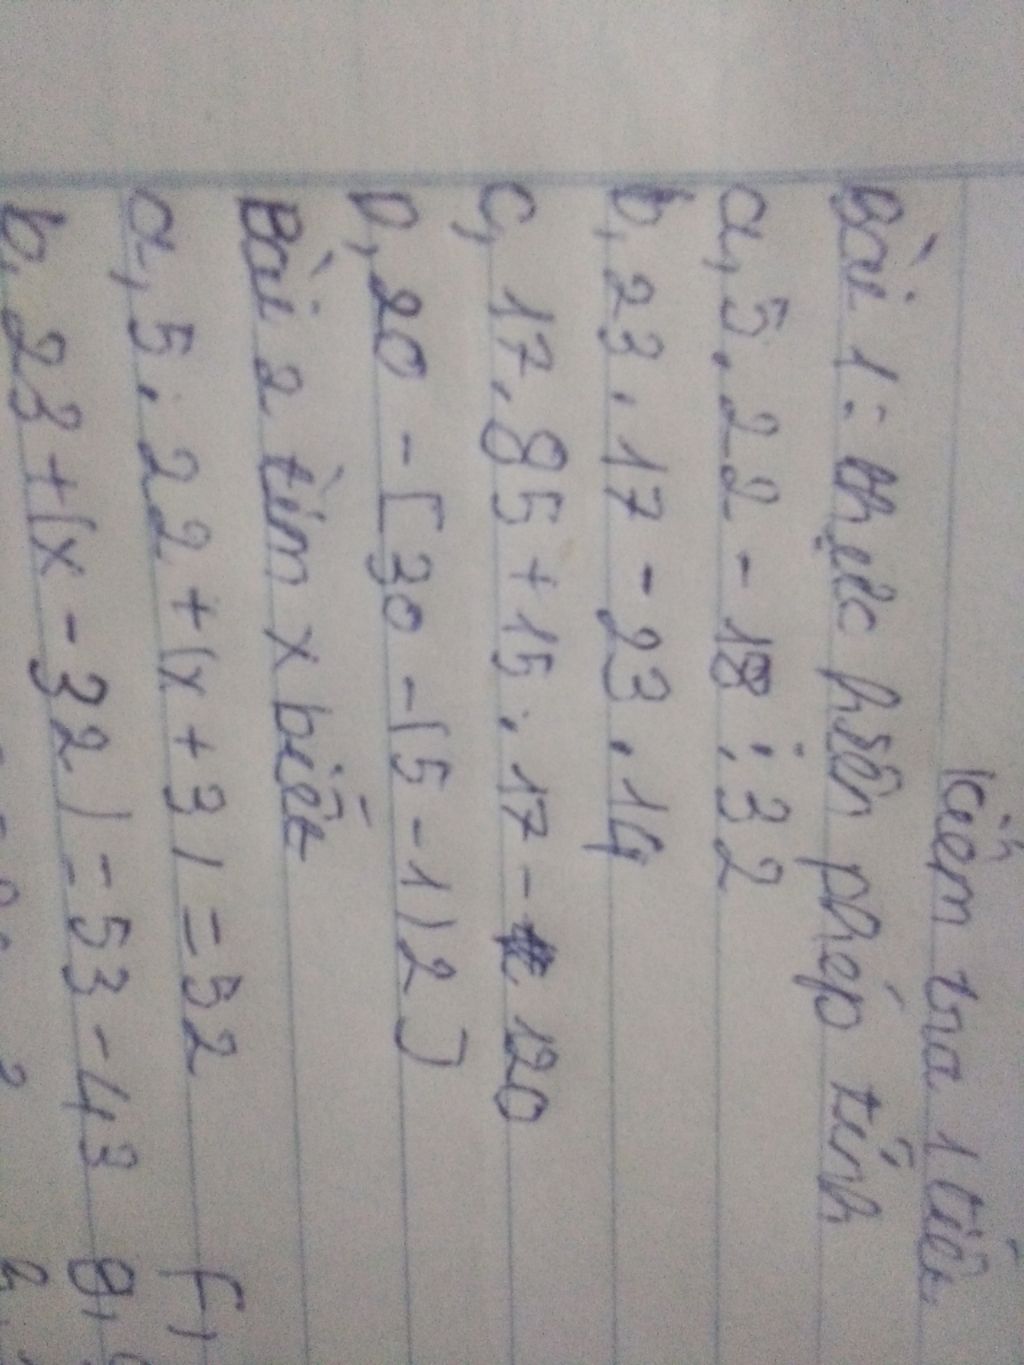 Kiểm tra 1 tiết
Bài 1: thực hiện phép tính
a, 5.22 - 18 : 32
b, 23.17 - 23.14
c, 17.85 + 15.17 - 120
D, 20 - [30 - (5 - 1)2]
Bài 2 tìm x biết
a, 5.22 + (x + 3) = 52
b, 23 + (x - 32) = 53 - 43
F,